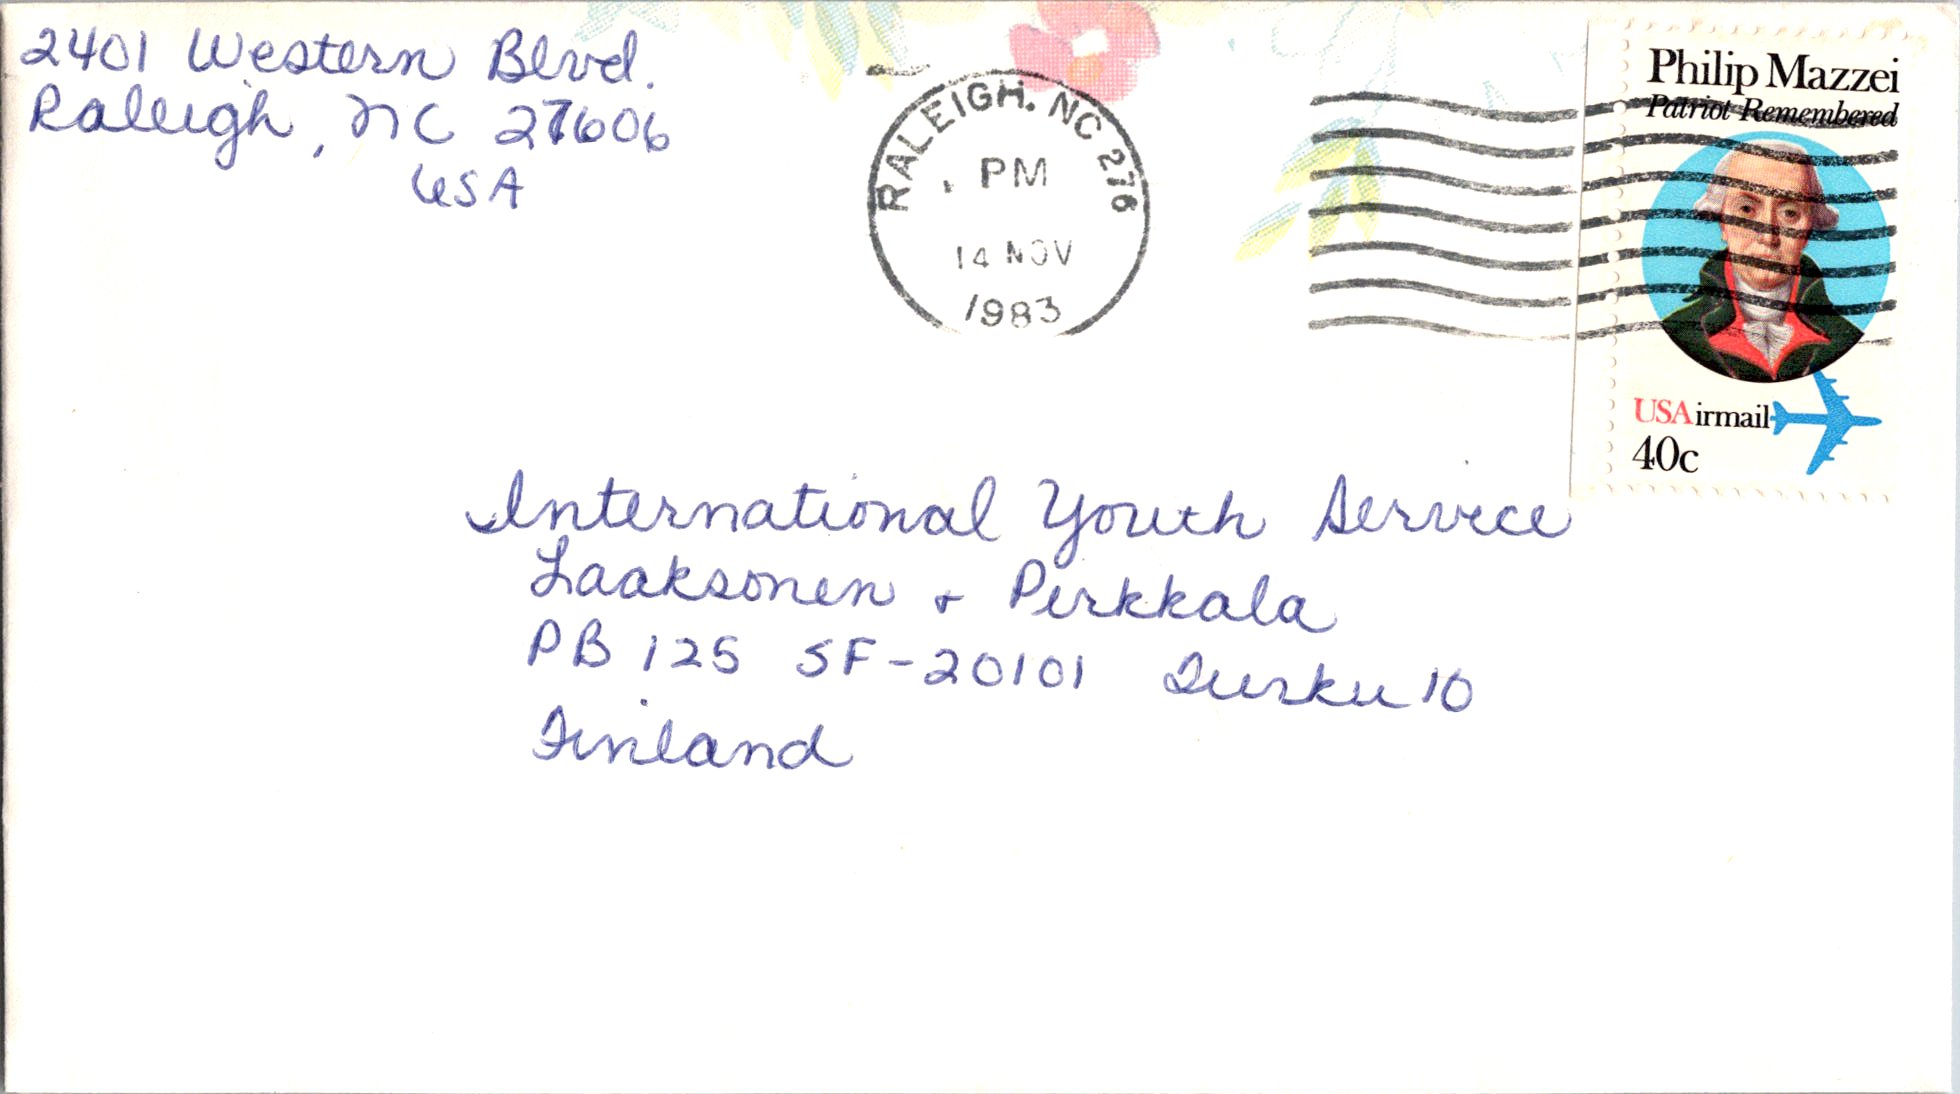 2401 Western Blvd.
Raleigh, NC 27606
USA
RALEIGH. NC 276
PM
14 NOV
1983
Philip Mazzei
Patriot Remembered
USAirmail
40c
International Youth Service
Laaksonen + Pirkkala
PB 125 SF-20101 Turku 10
Finland